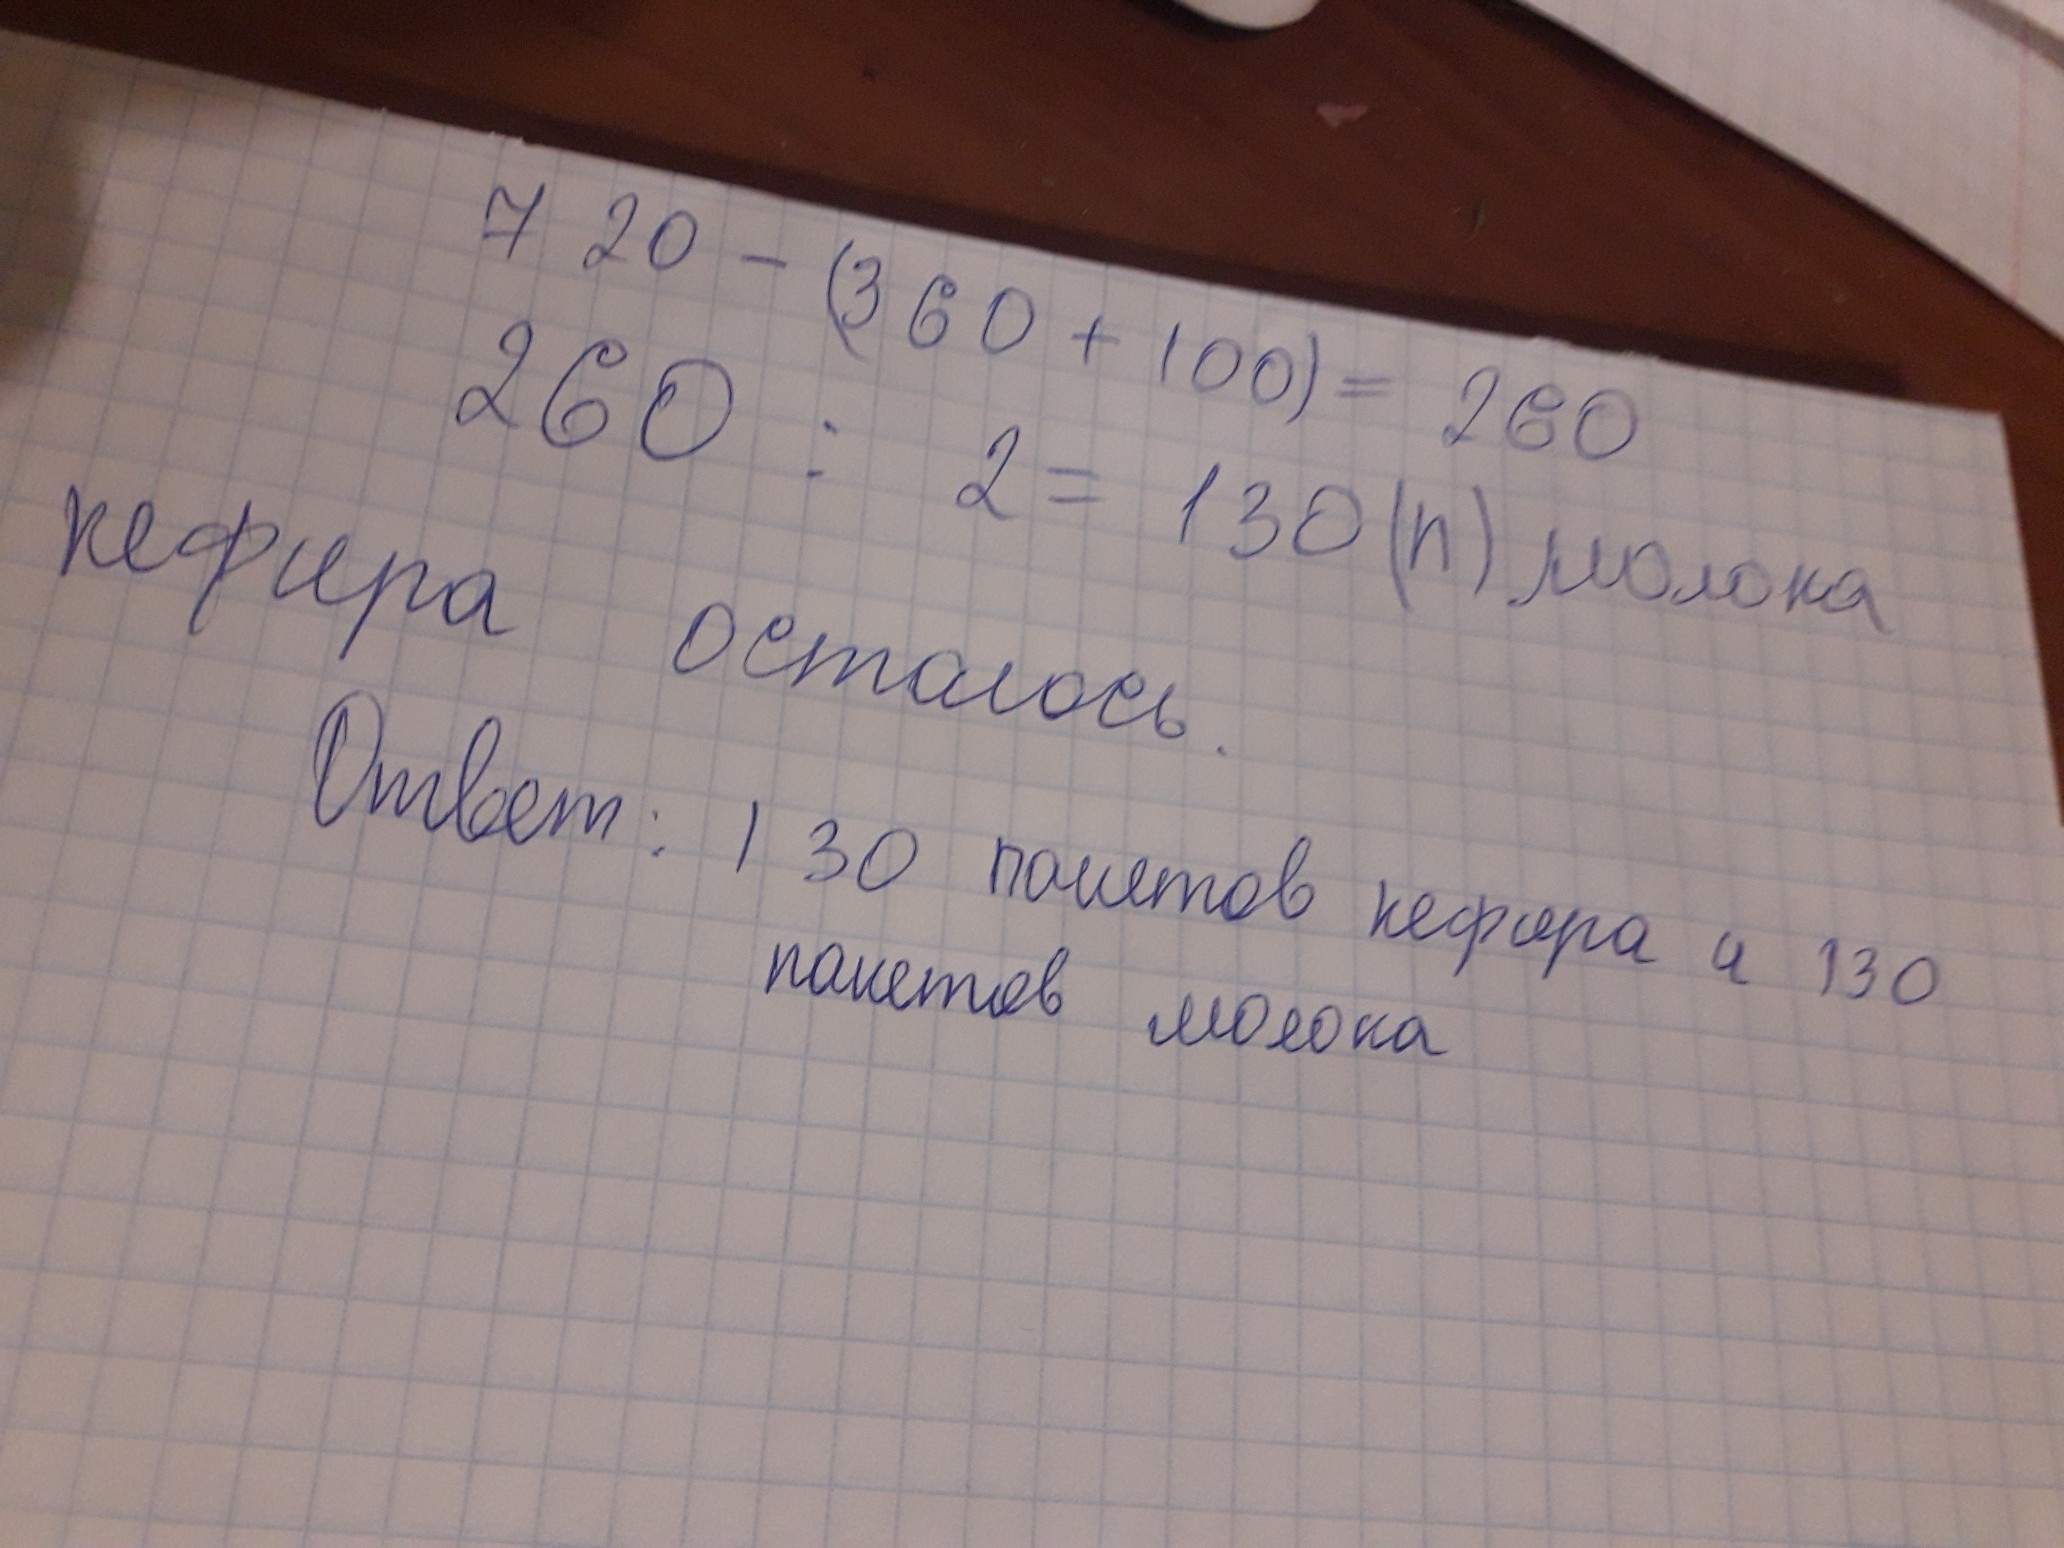 720 - (360 + 100) = 260
260 : 2 = 130 (п) молока
кефира осталось.
Ответ: 130 пакетов кефира и 130
пакетов молока